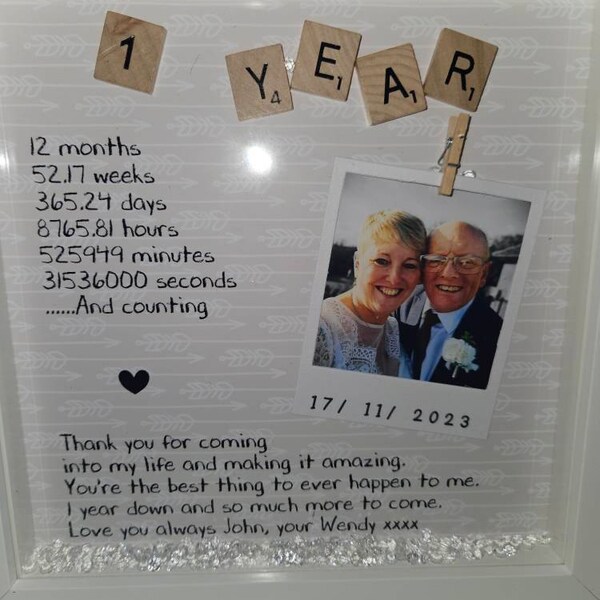 1 YEAR
12 months
52.17 weeks
365.24 days
8765.81 hours
525949 minutes
31536000 seconds
......And counting
17/ 11/ 2023
Thank you for coming
into my life and making it amazing.
You're the best thing to ever happen to me.
1 year down and so much more to come.
Love you always John, your Wendy xxxx